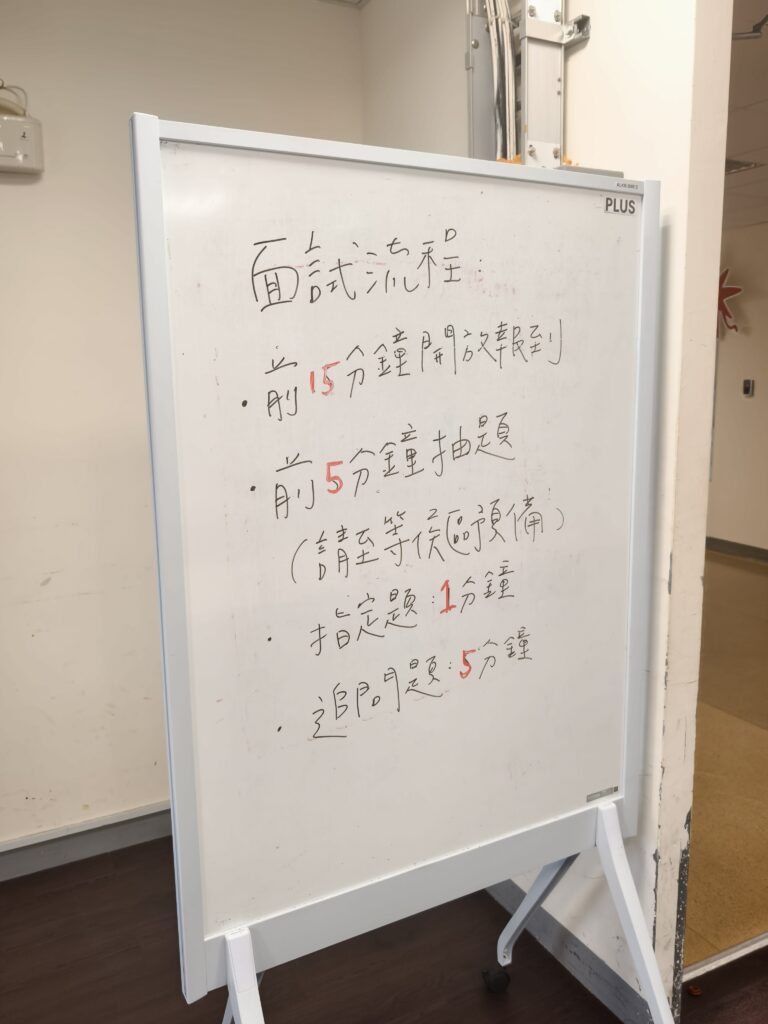 PLUS
面試流程:
・前15分鐘開放報到
・前5分鐘抽題
(請至等侯區預備)
・指定題:1分鐘
・追問題:5分鐘